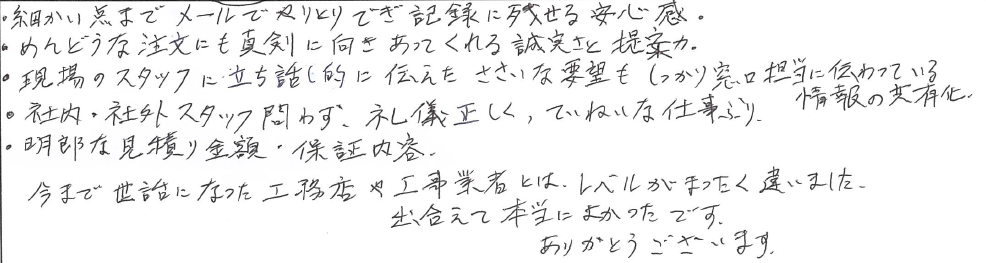 ・細かい点までメールでやりとりでき記録に残せる安心感。
・めんどうな注文にも真剣に向きあってくれる誠実さと提案力。
・現場のスタッフに立ち話し的に伝えたささいな要望もしっかり窓口担当に伝わっている
情報の共有化。
・社内・社外スタッフ問わず、礼儀正しく、ていねいな仕事ぶり。
・明朗な見積り金額・保証内容。
今まで世話になった工務店や工事業者とは、レベルがまったく違いました。
出合えて本当によかったです。
ありがとうございます。